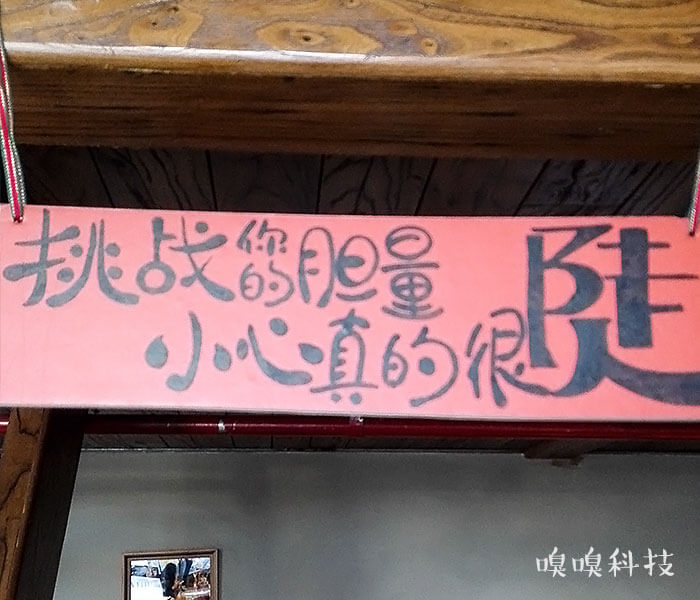 挑战你的胆量
小心真的很陡
嗅嗅科技